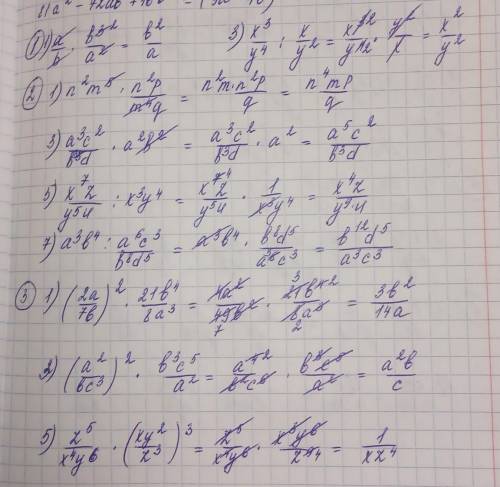 ① 1) a/b · b³/a² = b²/a 3) x³/y⁴ : x/y² = x³/y⁴ · y²/x = x²/y²
② 1) n²m⁵ · n²p/m⁴q = n²m·n²p/q = n⁴mp/q
3) a³c²/b⁵d · a²b² = a³c²/b³d · a² = a⁵c²/b³d
5) x⁷z/y⁵u : x³y⁴ = x⁷z/y⁵u · 1/x³y⁴ = x⁴z/y⁹·u
7) a³b⁴ : a⁶c³/b⁸d⁵ = a³b⁴ · b⁸d⁵/a⁶c³ = b¹²d⁵/a³c³
③ 1) (2a/7b)² · 21b⁴/8a³ = 4a²/49b² · 21b⁴/8a³ = 3b²/14a
2) (a²/bc³)² · b³c⁵/a² = a⁴/b²c⁶ · b³c⁵/a² = a²b/c
5) z⁵/x⁴y⁶ · (xy²/z³)³ = z⁵/x⁴y⁶ · x³y⁶/z⁹ = 1/xz⁴